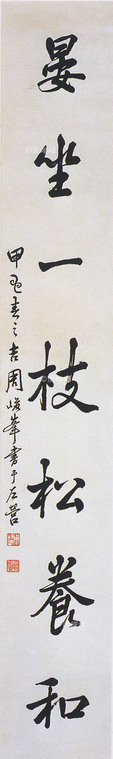 晏坐一枝松養和
甲申春之吉周峻峯書于左營